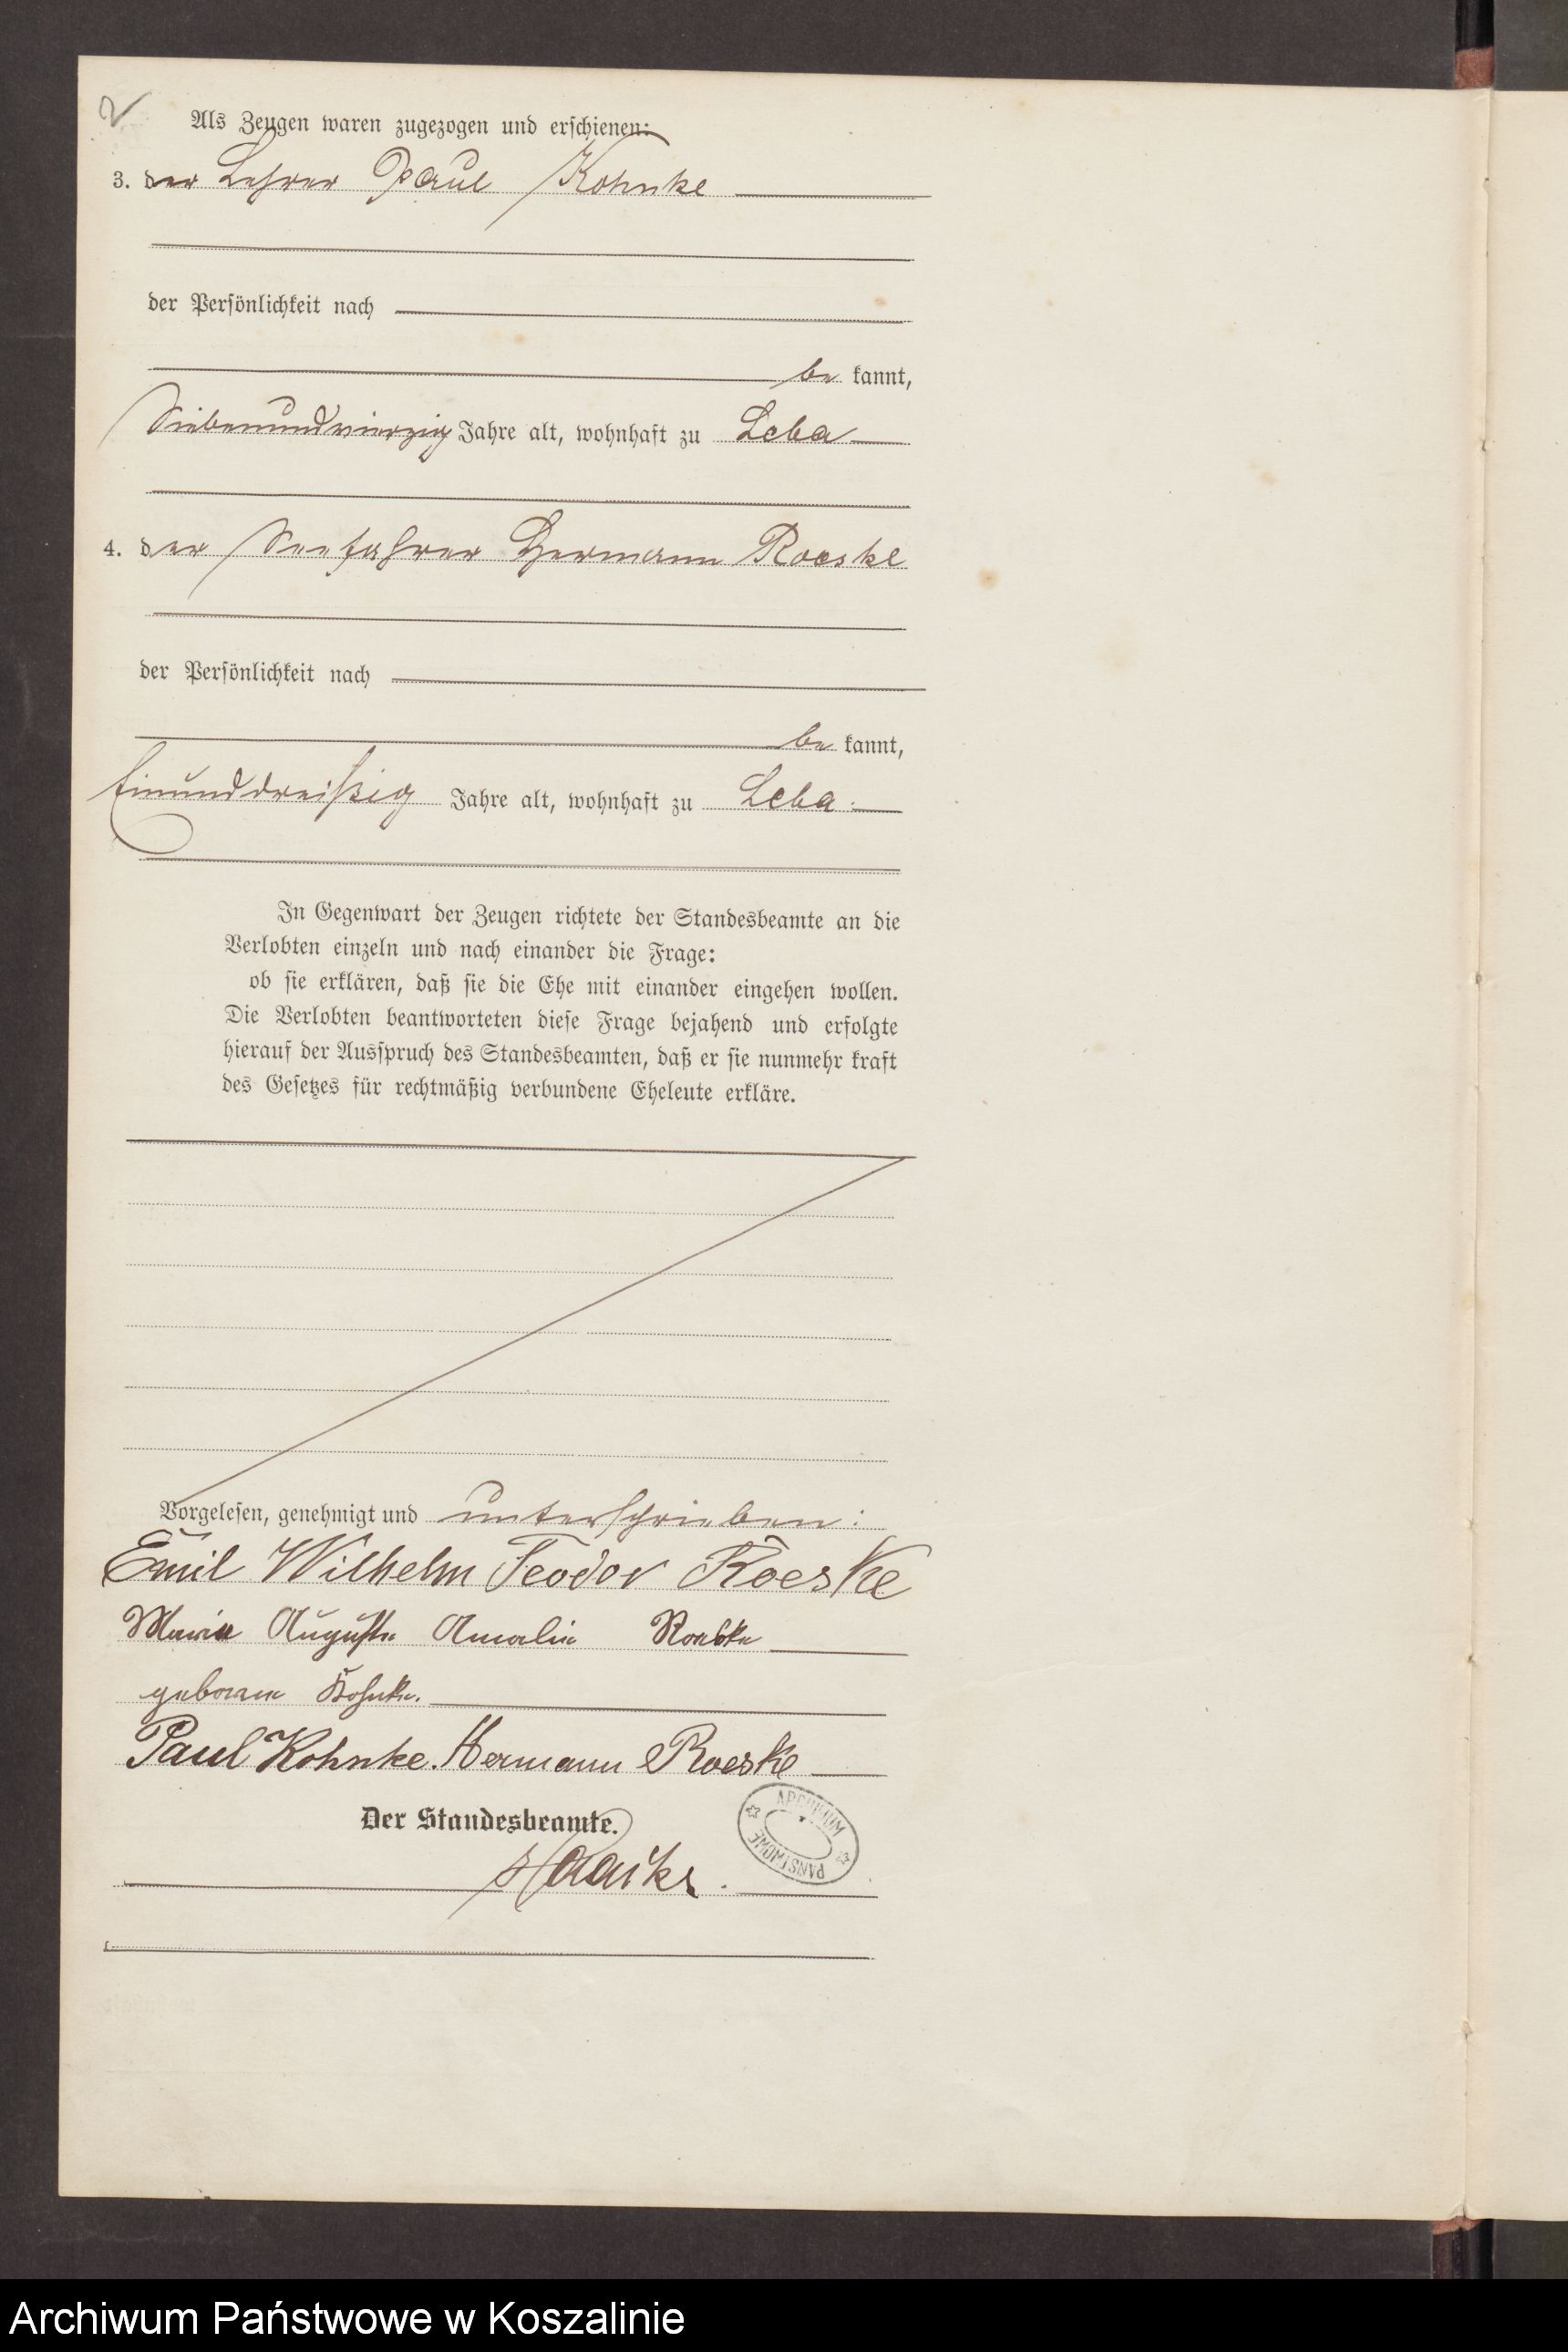 Als Zeugen waren zugezogen und erschienen:
3. der Lehrer Paul Kohnke
der Persönlichkeit nach
be kannt,
Siebenundvierzig Jahre alt, wohnhaft zu Leba
4. der Seefahrer Hermann Roeske
der Persönlichkeit nach
be kannt,
Einunddreißig Jahre alt, wohnhaft zu Leba.
In Gegenwart der Zeugen richtete der Standesbeamte an die
Verlobten einzeln und nach einander die Frage:
ob sie erklären, daß sie die Ehe mit einander eingehen wollen.
Die Verlobten beantworteten diese Frage bejahend und erfolgte
hierauf der Ausspruch des Standesbeamten, daß er sie nunmehr kraft
des Gesetzes für rechtmäßig verbundene Eheleute erkläre.
Vorgelesen, genehmigt und unterschrieben:
Emil Wilhelm Teodor Roeske
Marie Auguste Amalie Roeske
geborene Kohnke.
Paul Kohnke. Hermann Roeske
Der Standesbeamte.
ARCHIWUM PAŃSTWOWE
Archiwum Państwowe w Koszalinie